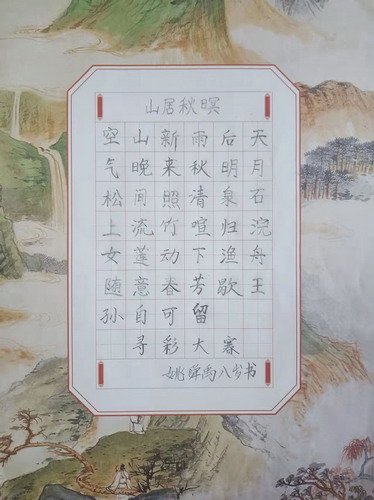 山居秋暝
空山新雨后天
气晚来秋明月
松间照清泉石
上流竹喧归浣
女莲动下渔舟
随意春芳歇王
孙自可留
寻彩大赛
姚舜禹八岁书